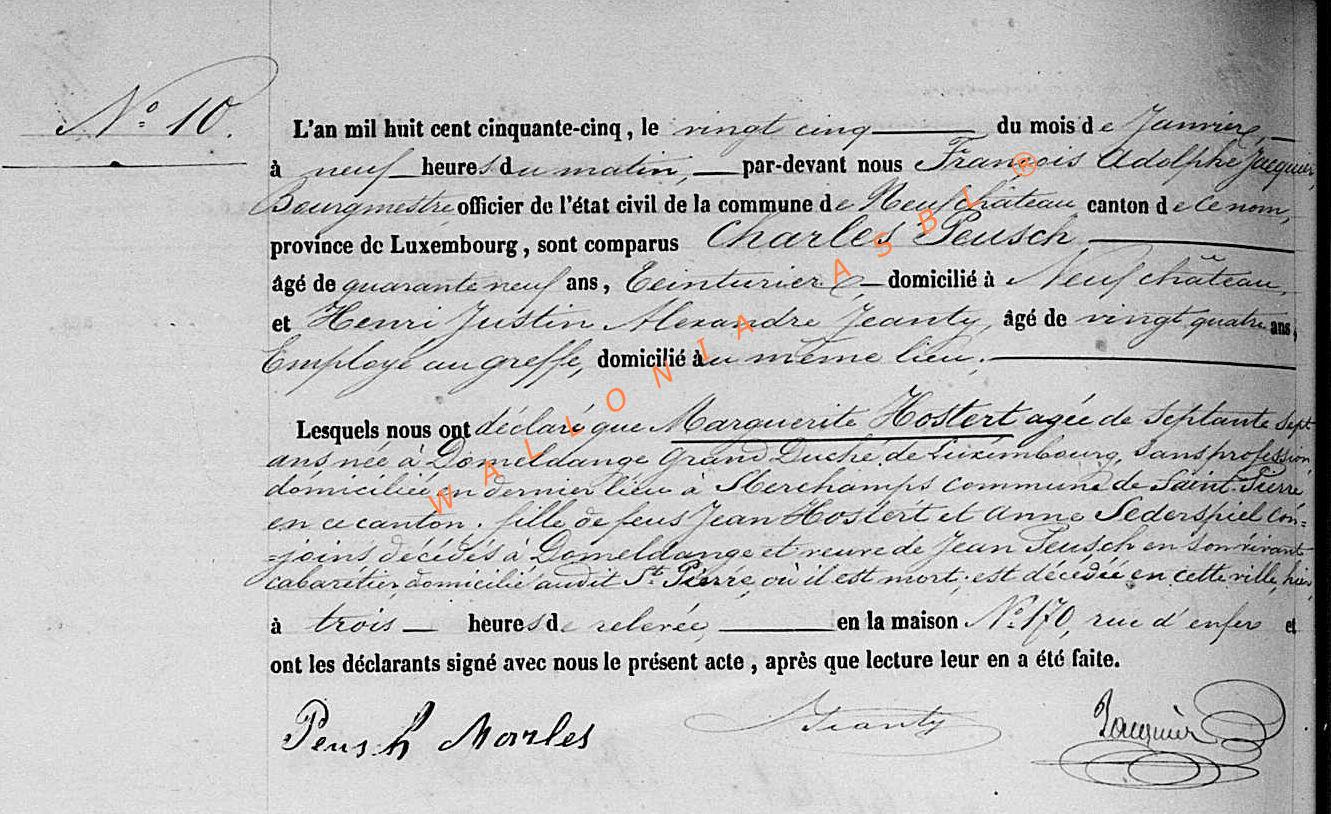 N.° 10.
L'an mil huit cent cinquante-cinq, le vingt cinq du mois de Janvier,
à neuf heures du matin, par-devant nous François Adolphe Jacquier,
Bourgmestre officier de l'état civil de la commune de Neufchâteau canton de ce nom,
province de Luxembourg, sont comparus Charles Peusch
âgé de quarante neuf ans, Teinturier, domicilié à Neufchâteau,
et Henri Justin Alexandre Jeanty, âgé de vingt quatre ans,
Employé au greffe, domicilié au même lieu.
Lesquels nous ont déclaré que Marguerite Hostert agée de Septante Sept
ans née à Domeldange Grand Duché de Luxembourg, Sans profession
domiciliée en dernier lieu à Sberchamps commune de Saint-Pierre
en ce canton, fille de feus Jean Hostert et Anne Sederspiel con=
=joins décédés à Domeldange et veuve de Jean Peusch en son vivant
cabaretier domicilié audit St. Pierre, où il est mort; est décédée en cette ville, hier,
à trois heures de relevée, en la maison N.° 170, rue d'enfer et
ont les déclarants signé avec nous le présent acte, après que lecture leur en a été faite.
Peusch Marles Jeanty Jacquier
WALLONIA ASBL ®